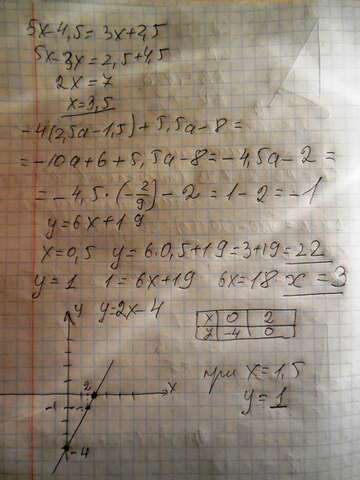 5x-4,5=3x+2,5
5x-3x=2,5+4,5
2x=7
x=3,5
-4(2,5a-1,5)+5,5a-8=
=-10a+6+5,5a-8=-4,5a-2=
=-4,5·(-2/9)-2=1-2=-1
y=6x+19
x=0,5 y=6·0,5+19=3+19=22
y=1 1=6x+19 6x=18 x=3
y y=2x-4
x 0 2
y -4 0
2 x
-1
-4
при x=1,5
y=1